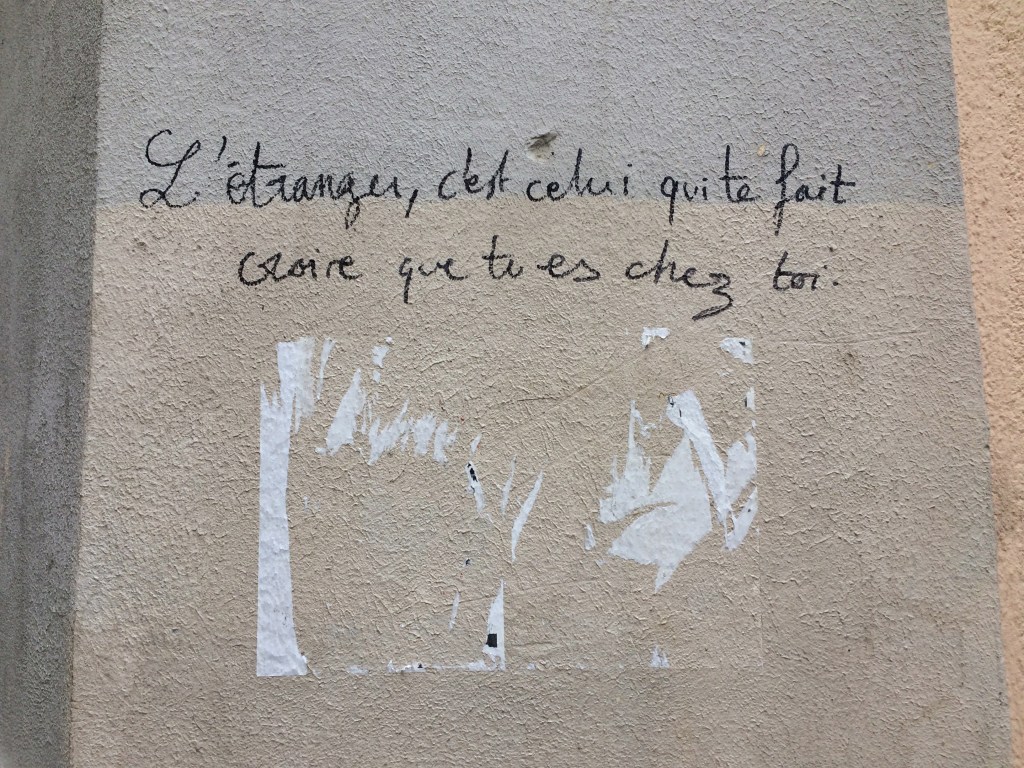 L'étranger, c'est celui qui te fait
croire que tu es chez toi.